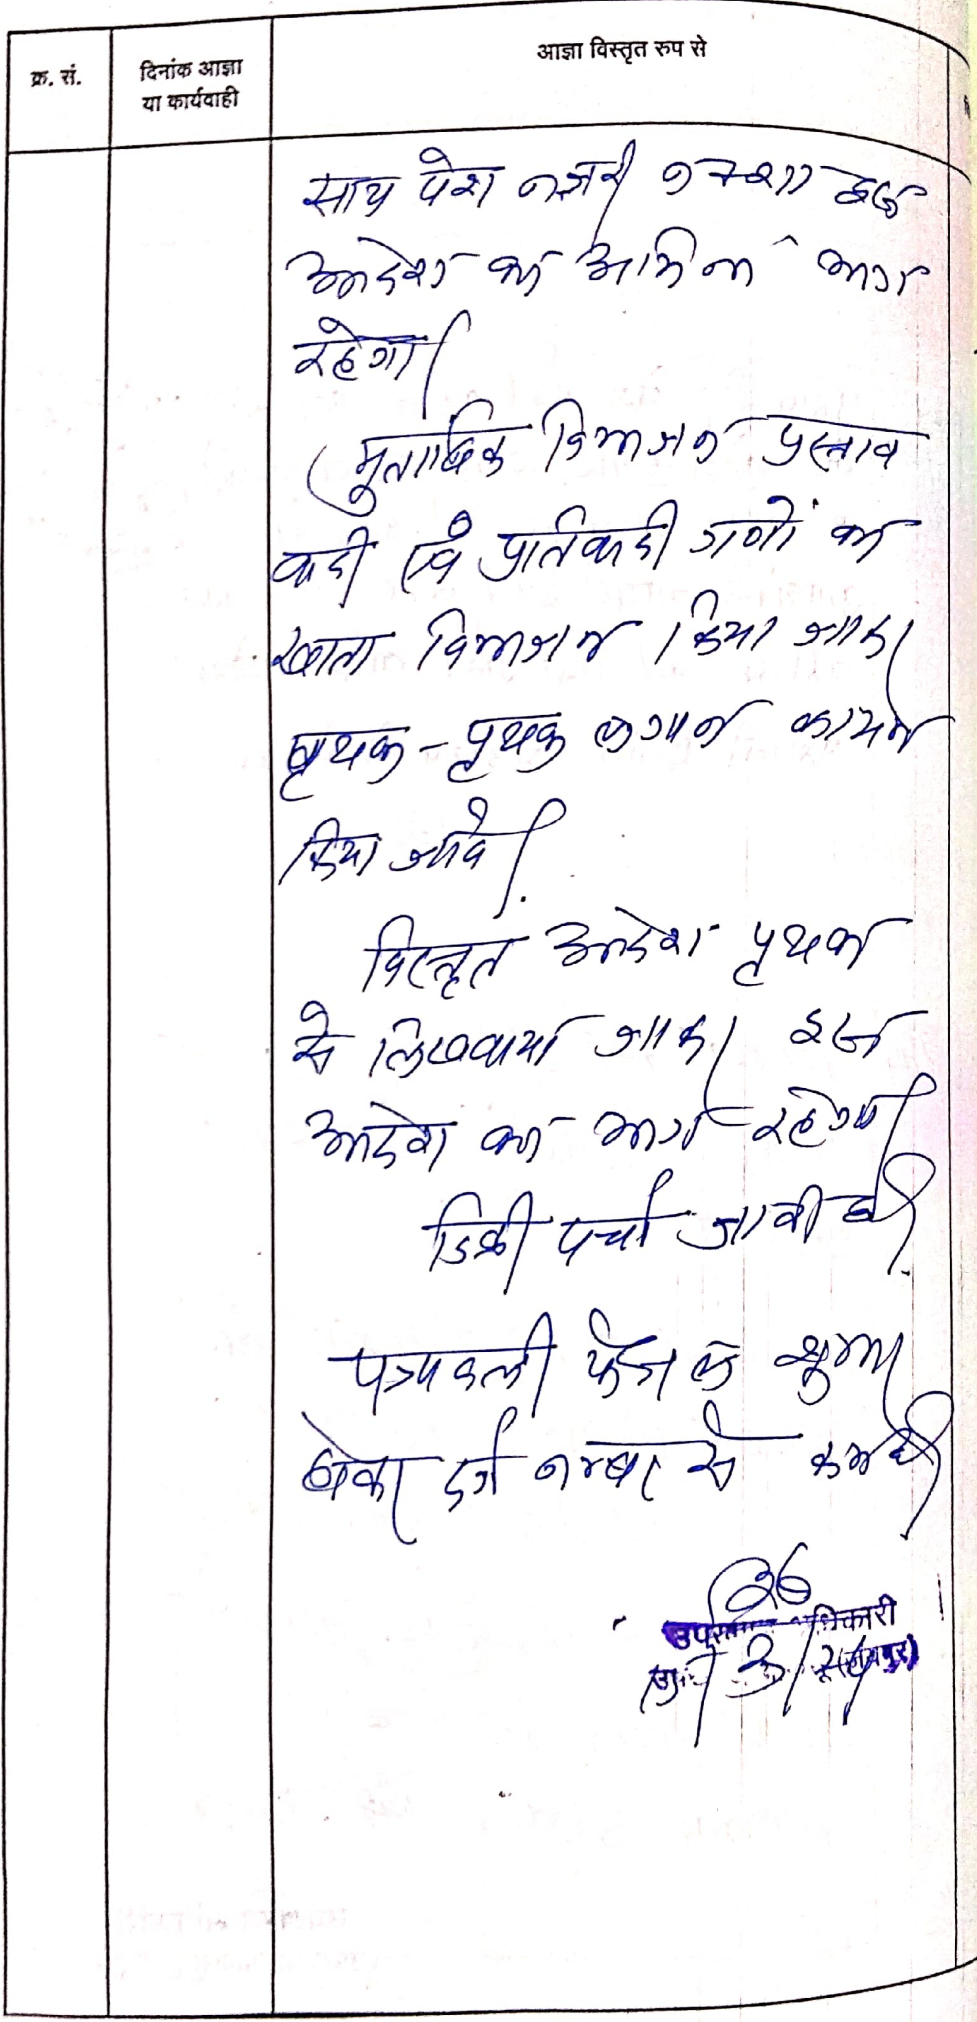 क्र. सं.
दिनांक आज्ञा
या कार्यवाही
आज्ञा विस्तृत रुप से
साथ पेश नजरी नक्शा इस
आदेश का अभिन्न भाग
रहेगा।
मुताबिक विभाजन प्रस्ताव
वादी एवं प्रतिवादी गणों का
खाता विभाजन किया जाकर
पृथक - पृथक लगान कायम
किया जावे।
विस्तृत आदेश पृथक
से लिखवाया जाकर इस
आदेश का भाग रहेगा।
डिक्री पर्चा जारी हो।
पत्रावली फैसल शुमार
होकर दर्ज नम्बर से कम हो।
अधिकारी